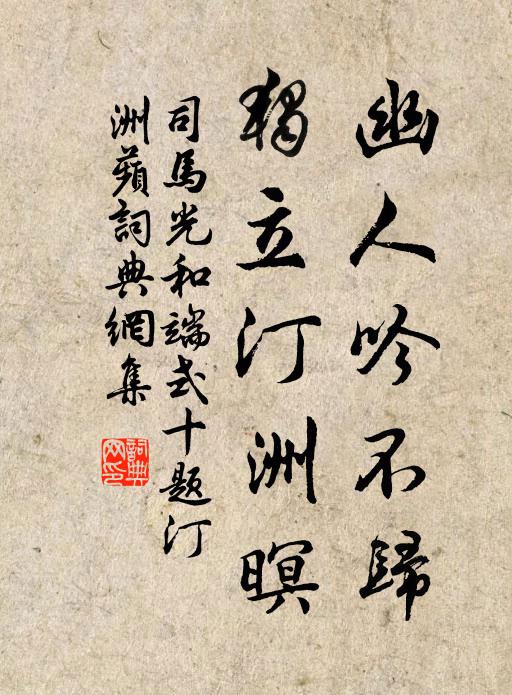 幽人吟不歸
獨立汀洲暝
司馬光和端式十題汀
洲蘋詞典網集
詞典
网印